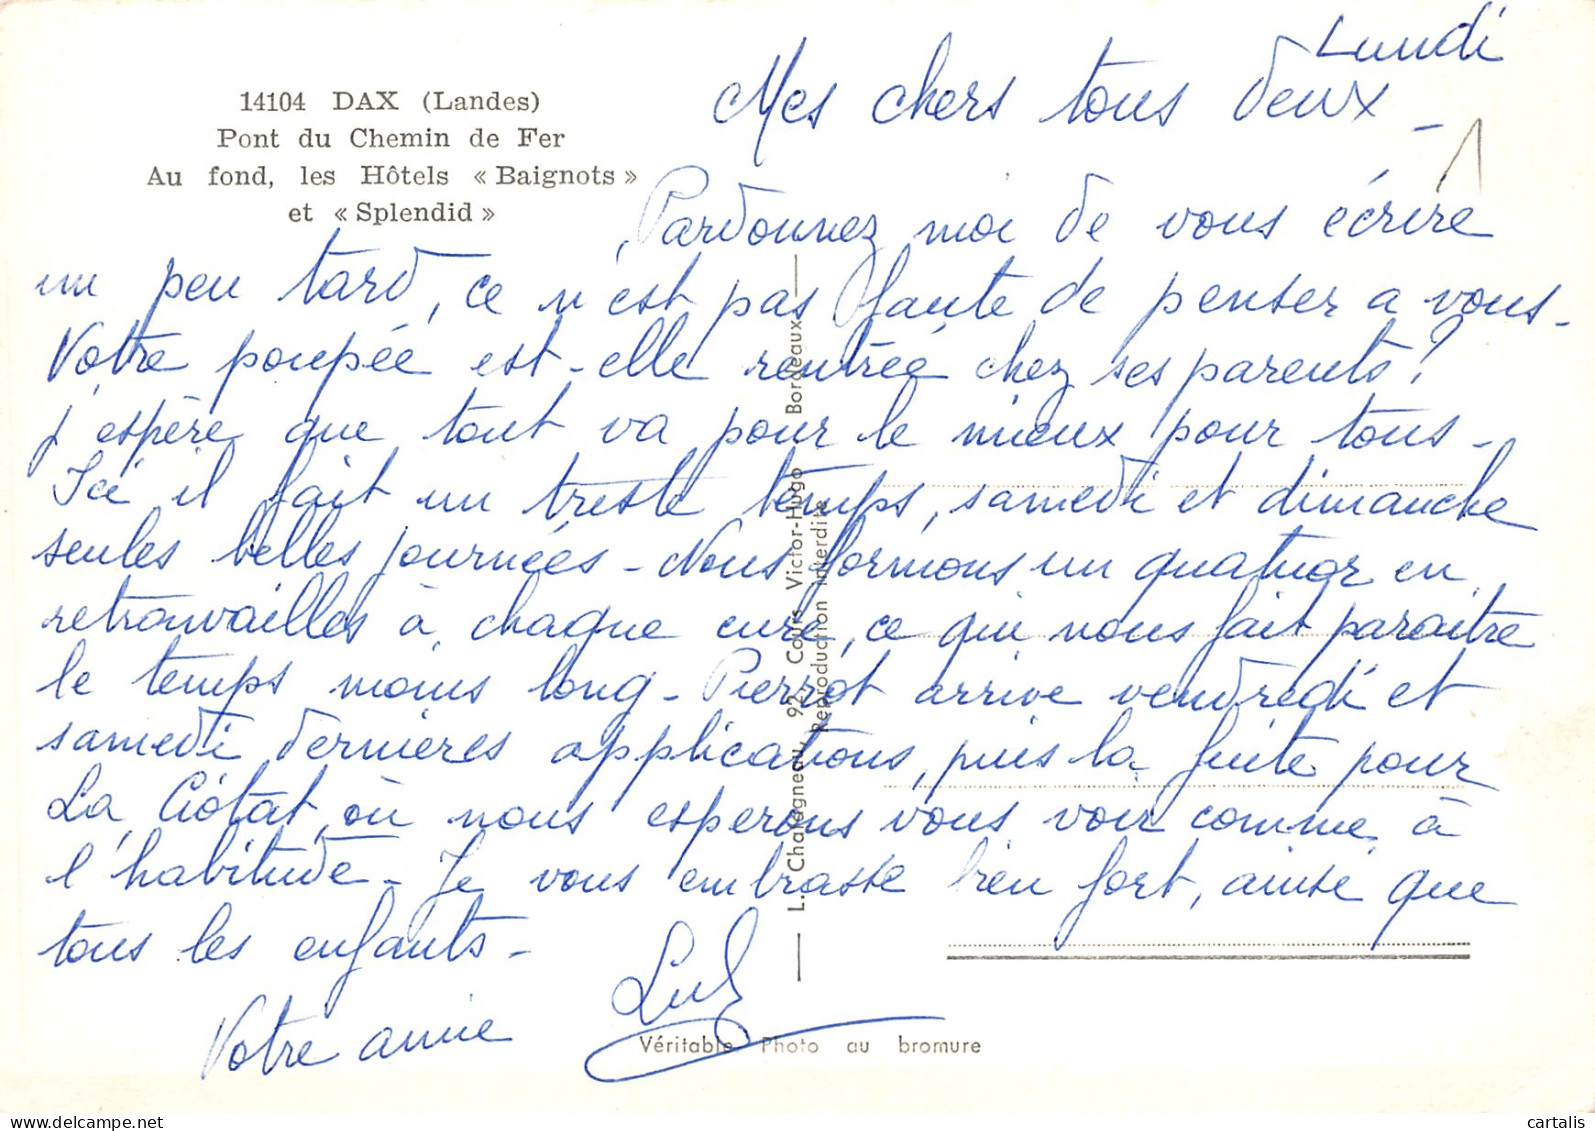 14104 DAX (Landes)
Pont du Chemin de Fer
Au fond, les Hôtels « Baignots »
et « Splendid »
Lundi
Mes chers tous deux -
Pardonnez moi de vous écrire
un peu tard, ce n'est pas faute de penser a vous -
Votre poupée est-elle rentrée chez ses parents ?
j'espère que tout va pour le mieux pour tous -
Ici il fait un triste temps, samedi et dimanche
seules belles journées - Nous formons un quatuor en
retrouvailles à chaque cure, ce qui nous fait paraitre
le temps moins long - Pierrot arrive vendredi et
samedi dernières applications, puis la fuite pour
La Ciotat, où nous esperons vous voir comme à
l'habitude - Je vous embrasse bien fort, ainsi que
tous les enfants -
Votre amie
L. Chatagneau, 92, Cours Victor-Hugo Bordeaux
Reproduction interdite
Véritable Photo au bromure
cartalis
www.delcampe.net